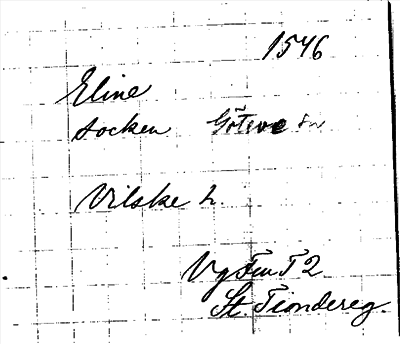 1546
Eline
socken Göteve sn
Vilske h
Vg Fm T 2
St. Tiondereg.